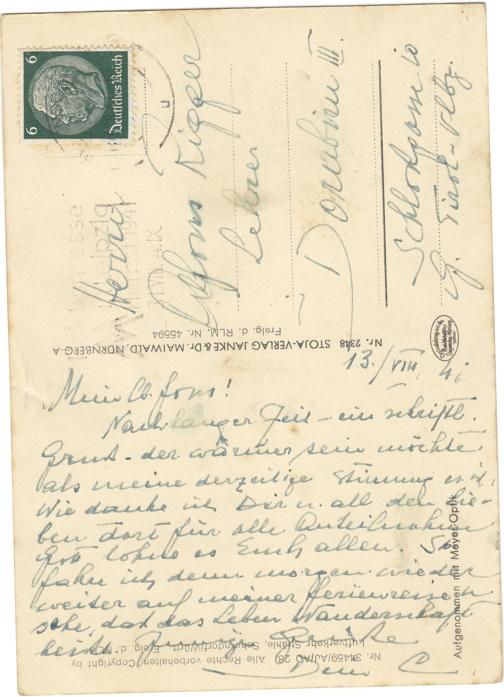 6 Deutsches Reich 6
Messe
Leipzig
1941
Herrn
Alfons Rigger
Lehrer
Dornbirn III.
Schloßgasse 10
G. Tirol-Vlbg.
Nr. 2348 STOJA-VERLAG JANKE & Dr. MAIWALD, NÜRNBERG-A
Freig. d. RLM. Nr. 45594
13./VIII. 41
Mein lb. fons!
Nach langer Zeit – ein schriftl.
Gruß – der wärmer sein möchte
als meine derzeitige Stimmung ist.
Wie danke ich Dir u. all den Lie-
ben dort für alle Anteilnahme
Gott lohne es Euch allen. So
fahr ich denn morgen wieder
weiter auf meiner Ferienreise u.
sehe, daß das Leben Wanderschaft
heißt. Innige Grüße
Dein C
Aufgenommen mit Meyer-Optik
Nr. 34459/AJ/AO 28) Alle Rechte vorbehalten! Copyright by
Luftverkehr Strähle, Schorndorf/Württ. Freig. d.